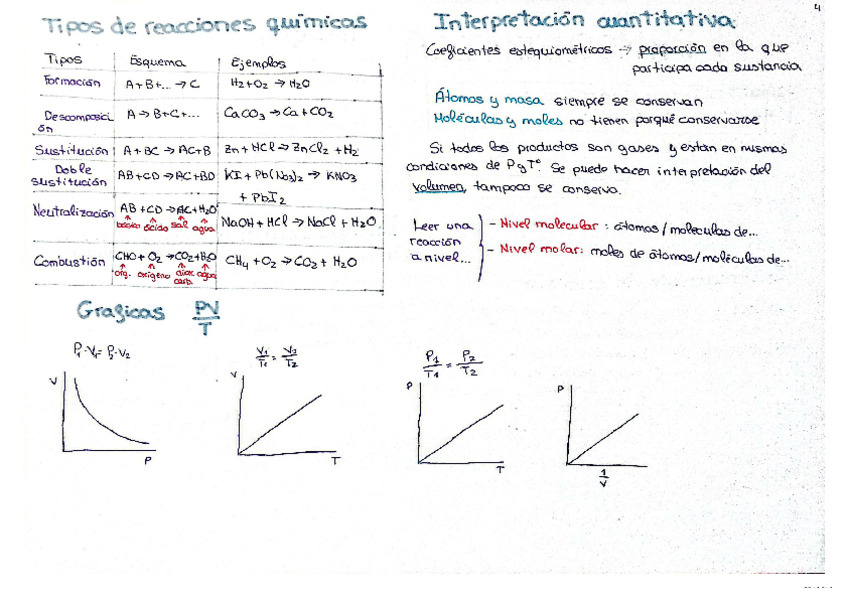 4
Tipos de reacciones químicas
Tipos Esquema Ejemplos
Formación A+B+... → C H2+O2 → H2O
Descomposici A → B+C+... CaCO3 → Ca + CO2
ón
Sustitución A + BC → AC+B Zn + HCl → ZnCl2 + H2
Doble AB+CD → AC+BD KI + Pb(NO3)2 → KNO3
sustitución + PbI2
Neutralización AB + CD → AC+H2O NaOH + HCl → NaCl + H2O
básico ácido sal agua
Combustión CHO + O2 → CO2+H2O CH4 + O2 → CO2 + H2O
org. oxígeno diox. agua
carb.
Interpretación cuantitativa
Coeficientes estequiométricos → proporción en la que
participa cada sustancia
Átomos y masa siempre se conservan
Moléculas y moles no tienen porqué conservarse
Si todos los productos son gases y están en mismas
condiciones de P y Tº. Se puede hacer interpretación del
volumen, tampoco se conserva.
Leer una
reacción
a nivel...
- Nivel molecular : átomos/moleculas de...
- Nivel molar: moles de átomos/moléculas de...
Graficas PV
T
P1·V1= P2·V2
V
P
V1/T1 = V2/T2
V
T
P1/T1 = P2/T2
P
T
P
1/V